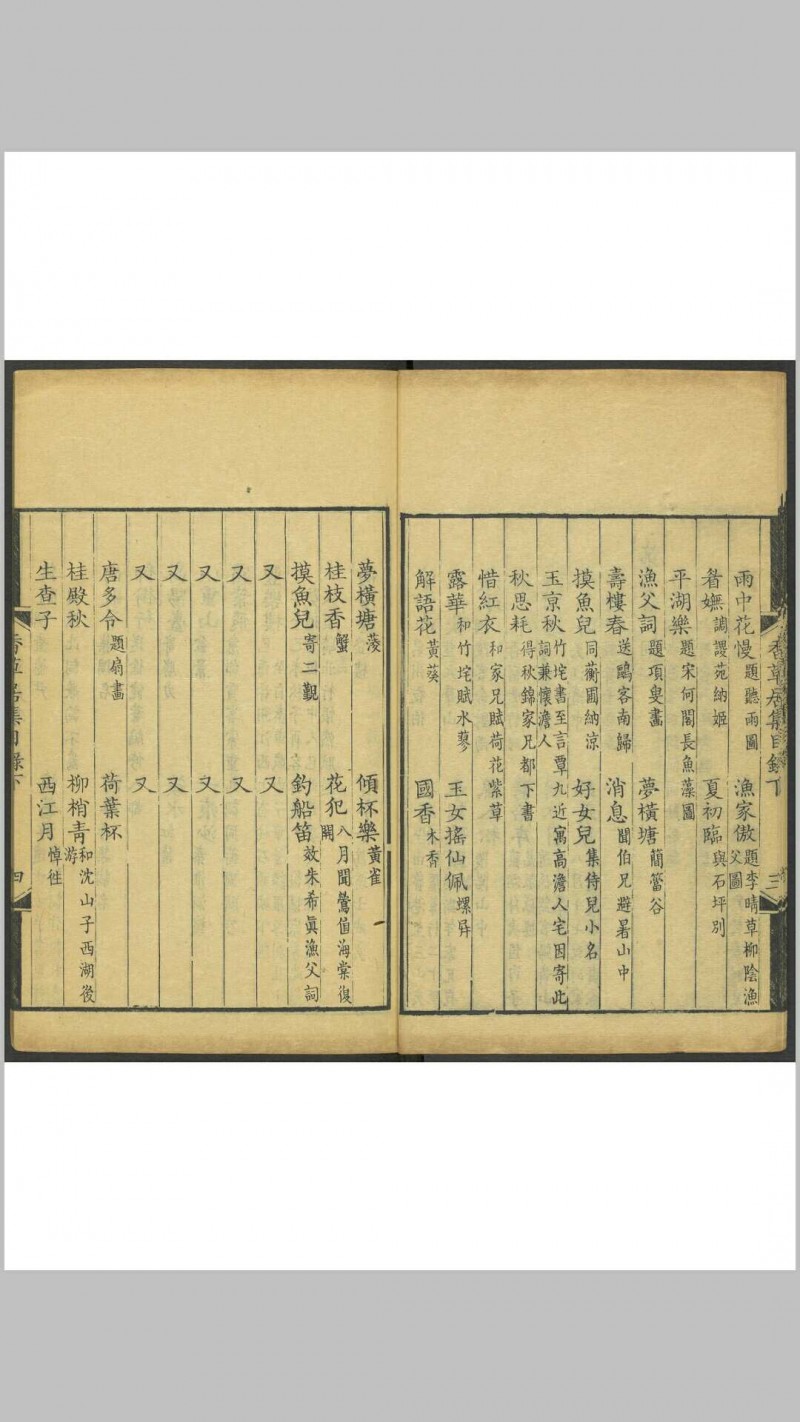 香草居集目錄下 三
雨中花慢題聽雨圖 漁家傲題李晴草柳陰漁父圖
眷嫵調謖苑納姬 夏初臨與石坪別
平湖樂題宋何閣長魚藻圖
漁父詞題項叟畫 夢橫塘簡簹谷
壽樓春送鷗客南歸 消息聞伯兄避暑山中
摸魚兒同蘅圃納涼 好女兒集侍兒小名
玉京秋竹垞書至言覃九近寓高澹人宅因寄此詞兼懷澹人
秋思耗得秋錦家兄都下書
惜紅衣和家兄賦荷花紫草
露華和竹垞賦水蓼 玉女搖仙佩螺屛
解語花黃葵 國香木香
夢橫塘淩 傾杯樂黃雀
桂枝香蟹 花犯八月聞鶯値海棠復開
摸魚兒寄二觀 釣船笛效朱希眞漁父詞
又 又
又 又
又 又
又 又
又 又
唐多令題扇畫 荷葉杯
桂殿秋 柳梢靑和沈山子西湖後游
生查子 西江月悼徃
香草居集目錄下 四